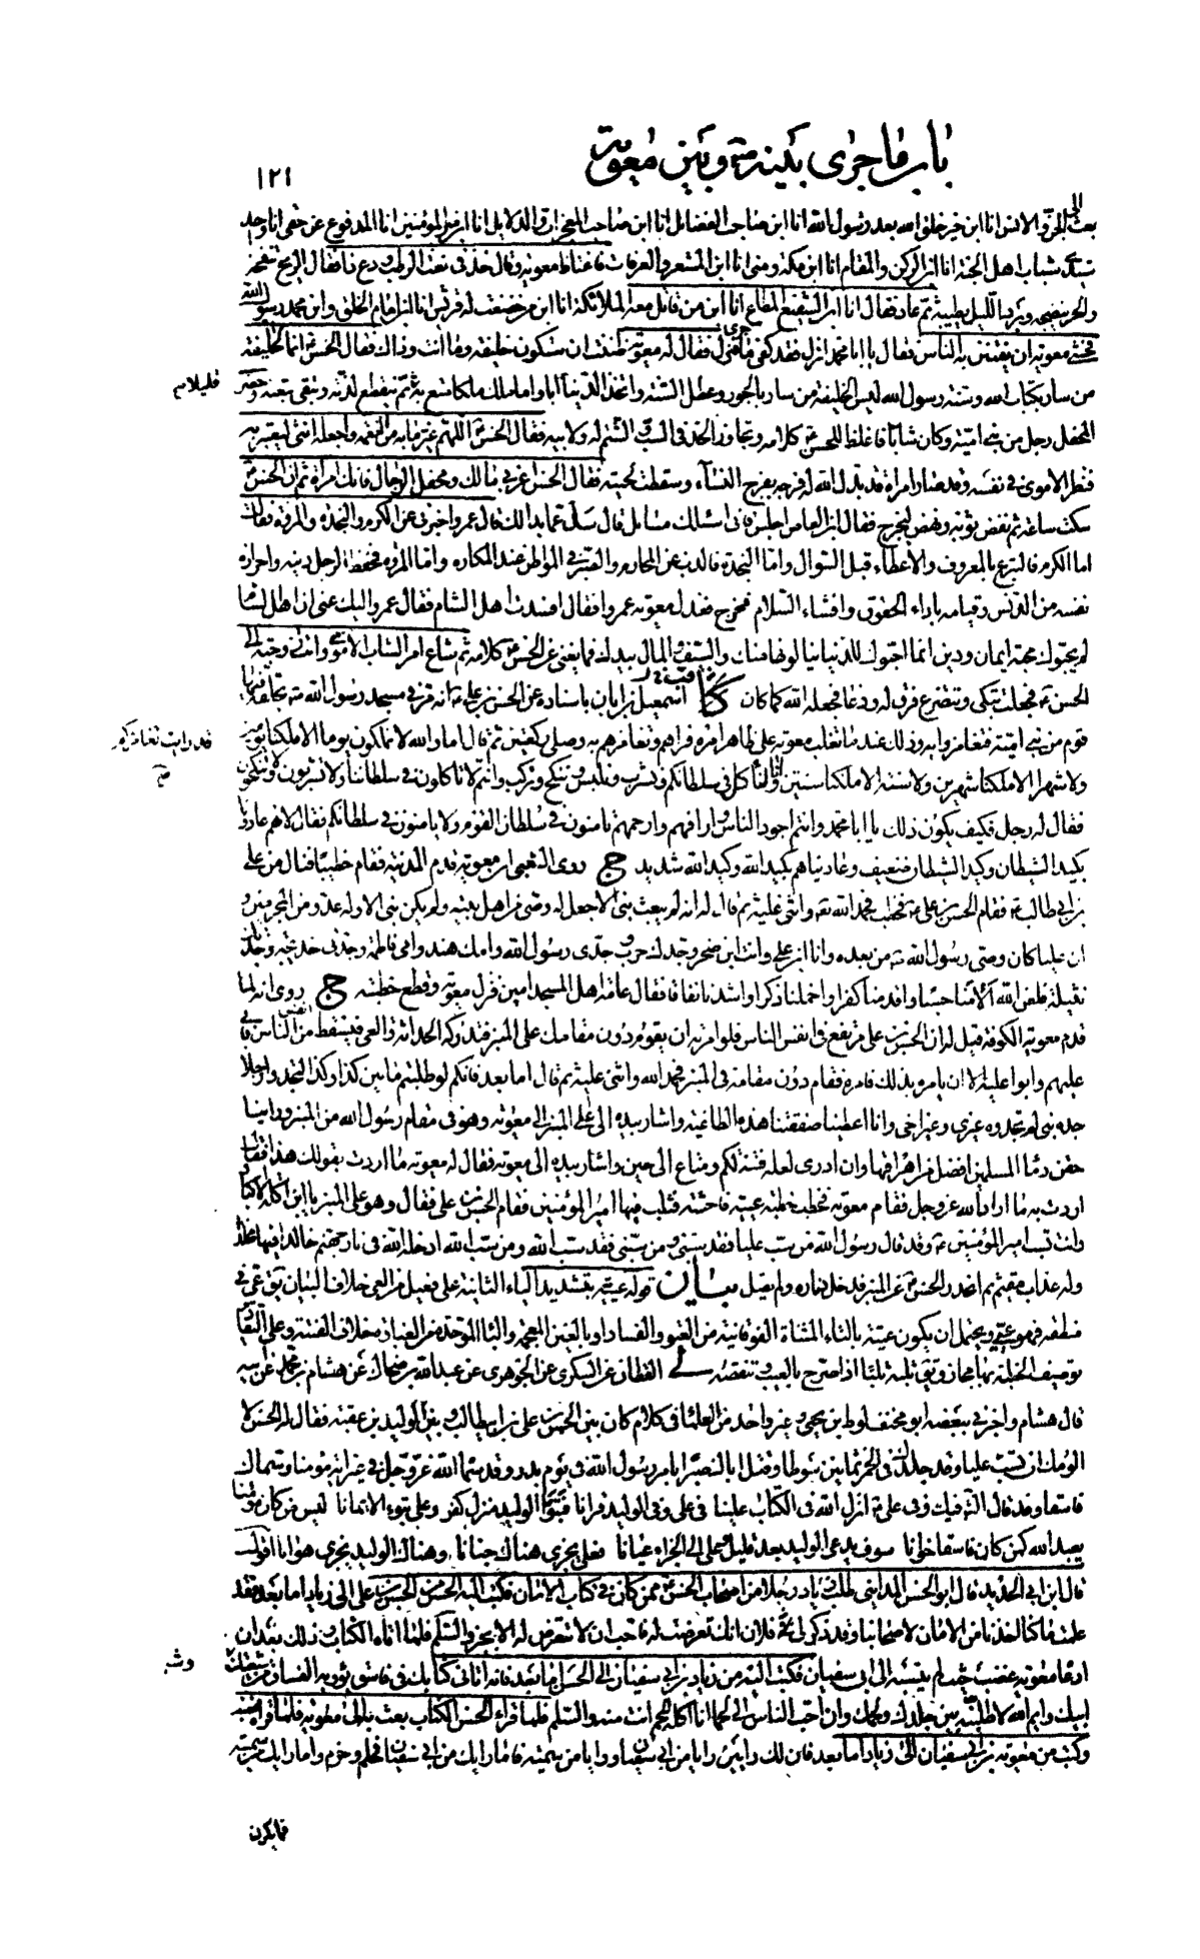 باب ما جرى بينه ؑ وبين معوية
١٢١
بعث الى الجن والانس انا ابن خير خلق الله بعد رسول الله انا ابن صاحب الفضائل انا ابن صاحب المعجزات والدلايل انا ابن امير المؤمنين انا المدفوع عن حقى انا واحد
سيدى شباب اهل الجنة انا ابن الركن والمقام انا ابن مكة ومنى انا ابن المشعر والعرفات فاغتاظ معوية وقال خذ فى نعت الرطب ودع ذا فقال الريح تنفخه
والحر ينضجه وبرد الليل يطيبه ثم عاد فقال انا ابن الشفيع المطاع انا ابن من قاتل معه الملائكة انا ابن من خضعت له قريش انا ابن امام الخلق وابن محمد رسول الله
فخشى معوية ان يفتتن به الناس فقال يا ابا محمد انزل فقد كفى ما جرى فنزل فقال له معوية ظننت ان ستكون خليفة وما انت وذاك فقال الحسن ؑ انما الخليفة
من سار بكتاب الله وسنة رسول الله ليس الخليفة من سار بالجور وعطل السنة واتخذ الدنيا ابا واما ملك ملكا متع به ثم تنقطع لذته وتبقى تبعته وحضر
قليلا م
المحفل رجل من بنى امية وكان شابا فاغلظ للحسن ؑ كلامه وتجاوز الحد فى السب والشتم له ولابيه فقال الحسن ؑ اللهم غير ما به من النعمة واجعله انثى ليعتبر به
فنظر الاموى فى نفسه وقد صار امراة قد بدل الله له فرجه بفرج النساء وسقطت لحيته فقال الحسن اعزبى مالك ومحفل الرجال فانك امراة ثم ان الحسن ؑ
سكت ساعة ثم نفض ثوبه ونهض ليخرج فقال ابن العاص اجلس فانى اسئلك مسائل قال سل عما بدا لك قال عمرو اخبرنى عن الكرم والنجدة والمروة فقال
اما الكرم فالتبرع بالمعروف والاعطاء قبل السوال واما النجدة فالذب عن المحارم والصبر فى المواطن عند المكاره واما المروة فحفظ الرجل دينه واحرازه
نفسه من الدنس وقيامه باداء الحقوق وافشاء السلام فخرج فعذل معوية عمروا فقال افسدت اهل الشام فقال عمرو اليك عنى ان اهل الشام
لم يحبوك محبة ايمان ودين انما احبوك للدنيا ينالونها منك والسيف والمال بيدك فما يغنى عن الحسن ؑ كلامه ثم شاع امر الشاب الاموى واتت زوجته الى
الحسن ؑ فجعلت تبكى وتتضرع فرق له ودعا فجعله الله كما كان اسمعيل بن ابان باسناده عن الحسن بن على ؑ انه مر فى مسجد رسول الله ؐ بحلقة فيها
قوم من بنى امية فتغامزوا به وذلك عند ما تغلب معوية على ظاهر امره فراهم وتغامزهم به وصلى ركعتين ثم قال اما والله لا تملكون يوما الا ملكنا يومين
قد رايت تغامزكم
ولا شهرا الا ملكنا شهرين ولا سنة الا ملكنا سنتين وانا لنأكل فى سلطانكم ونشرب ونلبس وننكح ونركب وانتم لا تاكلون فى سلطاننا ولا تشربون ولا تنكحون
فقال له رجل فكيف يكون ذلك يا ابا محمد وانتم اجود الناس وارافهم وارحمهم تامنون فى سلطان القوم ولا يامنون فى سلطانكم فقال لانهم عادونا
بكيد الشيطان وكيد الشيطان ضعيف وعاديناهم بكيد الله وكيد الله شديد ج روى الشعبى ان معوية قدم المدينة فقام خطيبا فنال من على
بن ابى طالب ؑ فقام الحسن بن على ؑ فخطب فحمد الله تع واثنى عليه ثم قال له انه لم يبعث نبى الا جعل له وصى من اهل بيته ولم يكن نبى الا وله عدو من المجرمين و
ان عليا كان وصى رسول الله ؐ من بعده وانا ابن على وانت ابن صخر وجدك حرب وجدى رسول الله وامك هند وامى فاطمة وجدتى خديجة وجدتك
نثيلة فلعن الله الأمنا حسبا واقدمنا كفرا واخملنا ذكرا واشدنا نفاقا فقال عامة اهل المسجد امين فنزل معوية وقطع خطبته ج روى انه لما
قدم معوية الكوفة قيل له ان الحسن بن على مرتفع فى انفس الناس فلو امرته ان يقوم دون مقامك على المنبر فتدركه الحداثة والعى فيسقط من انفس الناس فابى
عليهم وابوا عليه الا ان يامره بذلك فامره فقام دون مقامه فى المنبر فحمد الله واثنى عليه ثم قال اما بعد فانكم لو طلبتم ما بين كذا وكذا لتجدوا رجلا
جده نبى لم تجدوه غيرى وغير اخى وانا اعطينا صفقتنا هذه الطاغية واشار بيده الى اعلى المنبر الى معوية وهو فى مقام رسول الله من المنبر وراينا
حقن دماء المسلمين افضل من اهراقها وان ادرى لعله فتنة لكم ومتاع الى حين واشار بيده الى معوية فقال له معوية ما اردت بقولك هذا فقال
اردت به ما اراد الله عز وجل فقام معوية فخطب خطبة عيية فاحشة فثلب فيها امير المؤمنين فقام الحسن بن على فقال وهو على المنبر يا ابن اكلة الاكباد
وانت تسب امير المؤمنين ؑ وقد قال رسول الله من سب عليا فقد سبنى ومن سبنى فقد سب الله ومن سب الله ادخله الله فى نار جهنم خالدا فيها مخلدا
وله عذاب مقيم ثم انحدر الحسن ؑ عن المنبر فدخل داره ولم يصل بيان قوله عيية بتشديد الياء الثانية على فعيل من العى خلاف البيان يق عى فى
منطقه فهو عيى ويحتمل ان يكون عتية بالتاء المثناة الفوقانية من العتو والفساد او بالغين المعجمة والباء الموحدة من الغباوة خلاف الفطنة وعلى التقادير
توصيف الخطبة بها مجاز ويق ثلبه ثلبا اذا صرح بالعيب وتنقصه القطان عن السكرى عن الجوهرى عن عبد الله بن ضحاك عن هشام بن محمد عن ابيه
قال هشام واخبرنى ببعضه ابو مخنف لوط بن يحيى وغير واحد من العلماء فى كلام كان بين الحسن بن على بن ابيطالب وبين الوليد بن عقبة فقال له الحسن لا
الومك ان تسب عليا وقد جلدك فى الخمر ثمانين سوطا وقتل اباك صبرا بامر رسول الله فى يوم بدر وقد سماه الله عز وجل فى غير اية مومنا وسماك
فاسقا وقد قال الشاعر فيك وفى على ؑ انزل الله فى الكتاب علينا فى على وفى الوليد قرانا فتبوا الوليد منزل كفر وعلى تبوء الايمانا ليس من كان مؤمنا
يعبد الله كمن كان فاسقا خوانا سوف يدعى الوليد بعد قليل وعلى الى الجزاء عيانا فعلى يجزى هناك جنانا وهناك الوليد يجزى هوانا اقول
قال ابن ابى الحديد قال ابو الحسن المداينى طلب زياد رجلا من اصحاب الحسن ؑ ممن كان فى كتاب الامان فكتب اليه الحسن من الحسن بن على الى زياد اما بعد فقد
علمت ما كنا اخذنا من الامان لاصحابنا وقد ذكر لى فلان انك تعرضت له فاحب ان لا تعرض له الا بخير والسلم فلما اتاه الكتاب وذلك بعد ان
ادعاه معوية غضب حيث لم ينسبه الى ابى سفيان فكتب اليه من زياد بن ابى سفيان الى الحسن اما بعد فانه اتانى كتابك فى فاسق يؤويه الفساق من شيعتك
وشيعة
ابيك وايم الله لاطلبنه بين جلدك ولحمك وان احب الناس الى لحما انا اكله للحم انت منه والسلم فلما قرا الحسن الكتاب بعث به الى معوية فلما قراه غضب
وكتب من معوية بن ابى سفيان الى زياد اما بعد فان لك رايين رايا من ابى سفيان ورايا من سمية فاما رايك من ابى سفيان فحلم وحزم واما رايك من سمية
فما يكون